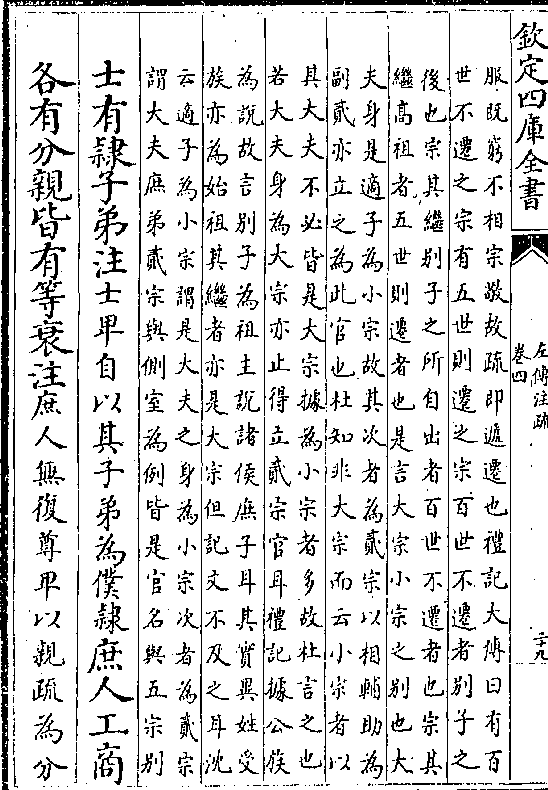 欽定四庫全書
左傳注疏
卷四
二十九
服既窮不相宗敬故疏即遞遷也禮記大傳曰有百
世不遷之宗有五世則遷之宗百世不遷者別子之
後也宗其繼別子之所自出者百世不遷者也宗其
繼高祖者五世則遷者也是言大宗小宗之別也大
夫身是適子為小宗故其次者為貳宗以相輔助為
副貳亦立之為此官也杜知非大宗而云小宗者以
其大夫不必皆是大宗據為小宗者多故杜言之也
若大夫身為大宗亦止得立貳宗官耳禮記據公族
為說故言別子為祖主說諸侯庶子耳其實異姓受
族亦為始祖其繼者亦是大宗但記文不及之耳沈
云適子為小宗謂是大夫之身為小宗次者為貳宗
謂大夫庶弟貳宗與側室為例皆是官名與五宗別
士有隸子弟注士卑自以其子弟為僕隸庶人工商
各有分親皆有等衰注庶人無復尊卑以親疏為分